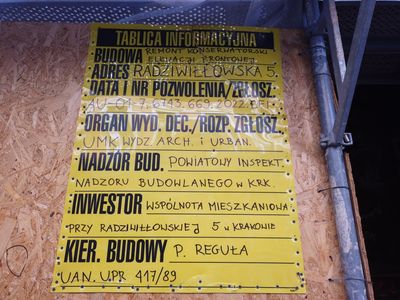 TABLICA INFORMACYJNA
BUDOWA REMONT KONSERWATORSKI
ELEWACJI FRONTOWEJ
ADRES RADZIWIŁŁOWSKA 5.
DATA I NR POZWOLENIA/ZGŁOSZ.
AU-01-7.6743.669.2022.DFI
ORGAN WYD. DEC./ROZP. ZGŁOSZ.
UMK WYDZ. ARCH. i URBAN.
NADZÓR BUD. POWIATOWY INSPEKT.
NADZORU BUDOWLANEGO w KRK.
INWESTOR WSPÓLNOTA MIESZKANIOWA
PRZY RADZIWIŁŁOWSKIEJ 5 w KRAKOWIE
KIER. BUDOWY P. REGUŁA
UAN. UPR 417/89